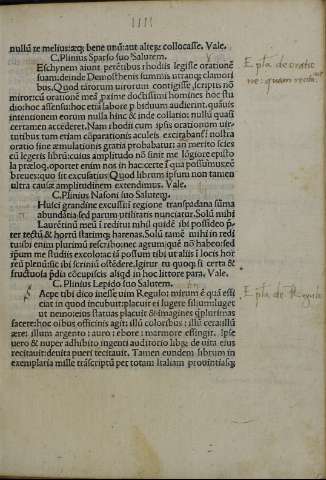 IIII
nullū te melius: æq; bene unū: aut alteꝝ collocasse. Vale.
C. Plinius Sparso suo Salutem.
Eschynem aiunt petētibus rhodiis legisse orationē
suam: deinde Demosthenis summis utranq; clamori
bus. Quod uirorum uirorum contigisse scriptis nō
miror: cū orationē meā proxime doctissimi homines hoc stu
dio: hoc assensu: hoc etiā labore p biduum audierint. quāuis
intentionem eorum nulla hinc & inde collatio: nullū quasi
certamen accēderet. Nam rhodii cum ipsis orationum uir-
tutibus tum etiam cōparationis aculeis excitabant̄: nostra
oratio sine æmulationis gratia probabatur: an merito scies
cū legeris librū: cuius amplitudo nō sinit me lōgiore epistola
præloq. oportet enim nos in hac certe ī qua possumus eē
breues: quo sit excusatius Quod librum ipsum non tamen
ultra causæ amplitudinem extendimus. Vale.
C. Plinius Nasoni suo Salutem.
Husci grandine excussi: ī regione transpadana sūma
abundātia sed parum utilitatis nunciatur. Solū mihi
Laurētinū meū ī reditu: nihil quidē ibi possideo p-
ter tectū & hortū statimq; harenas. Solū tamē mihi in redi
tu: ibi enim plurimū rescribo: nec agrum quē nō habeo: sed
ipsum me studiis excolo: ac iā possum tibi ut aliis ī locis hor
reū plenū: sic ibi scriniū ostēdere. Igitur tu quoq; si certa &
fructuosa p̄dia cōcupiscis aliqd in hoc littore para. Vale.
C. Plinius Lepido suo Salutem.
Æpe tibi dico inesse uim Regulo: mirum ē quā effi
ciat in quod incubuit: placuit ei lugere filium: luget
ut nemo: eius statuas placuit & imagines q̄plurimas
facere: hoc oibus officinis agit: illū coloribus: illū cera: illū
ære: illum argento: auro: ebore: marmore effingit. Ipse
uero & nuper adhibito ingenti auditorio librū de uita eius
recitauit: de uita pueri recitauit. Tamen eundem librum in
exemplaria mille trāscriptū per totam Italiam prouintiasq;